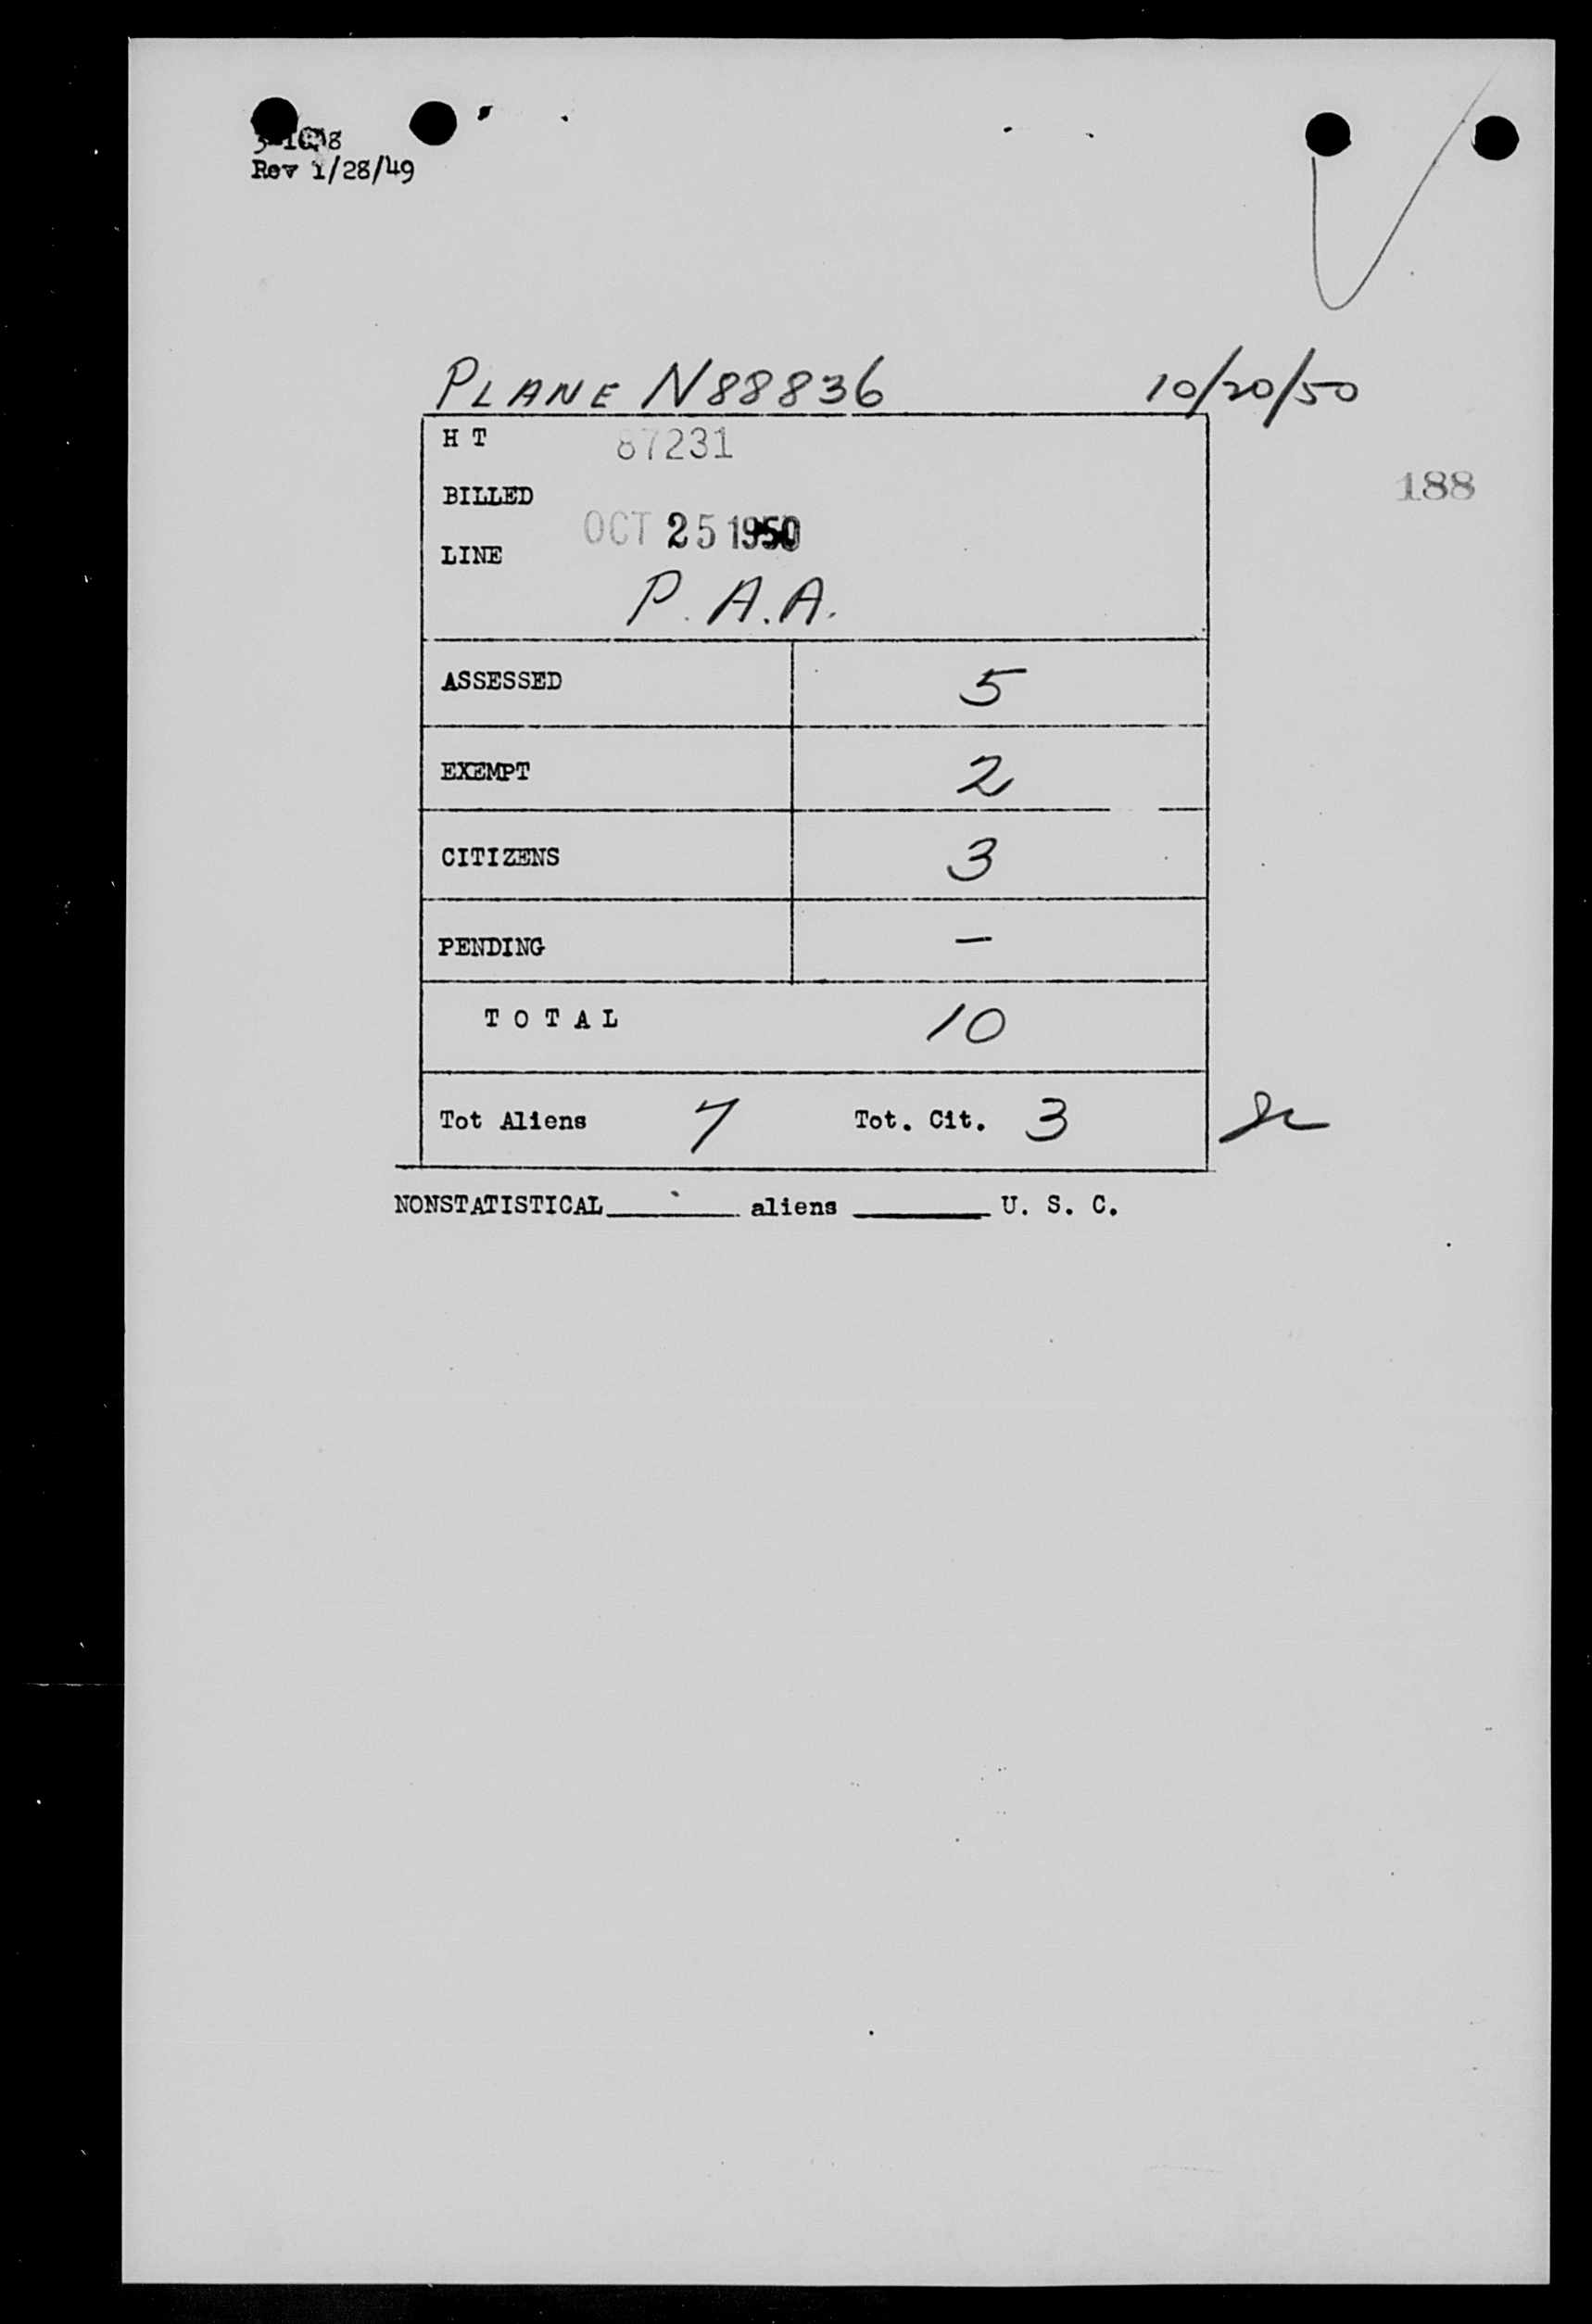 Rev 1/28/49
PLANE N88836 10/20/50
H T 87231
188
BILLED
OCT 25 1950
LINE
P. A. A.
ASSESSED 5
EXEMPT 2
CITIZENS 3
PENDING —
TOTAL 10
Tot Aliens 7 Tot. Cit. 3
NONSTATISTICAL______ aliens ______ U. S. C.